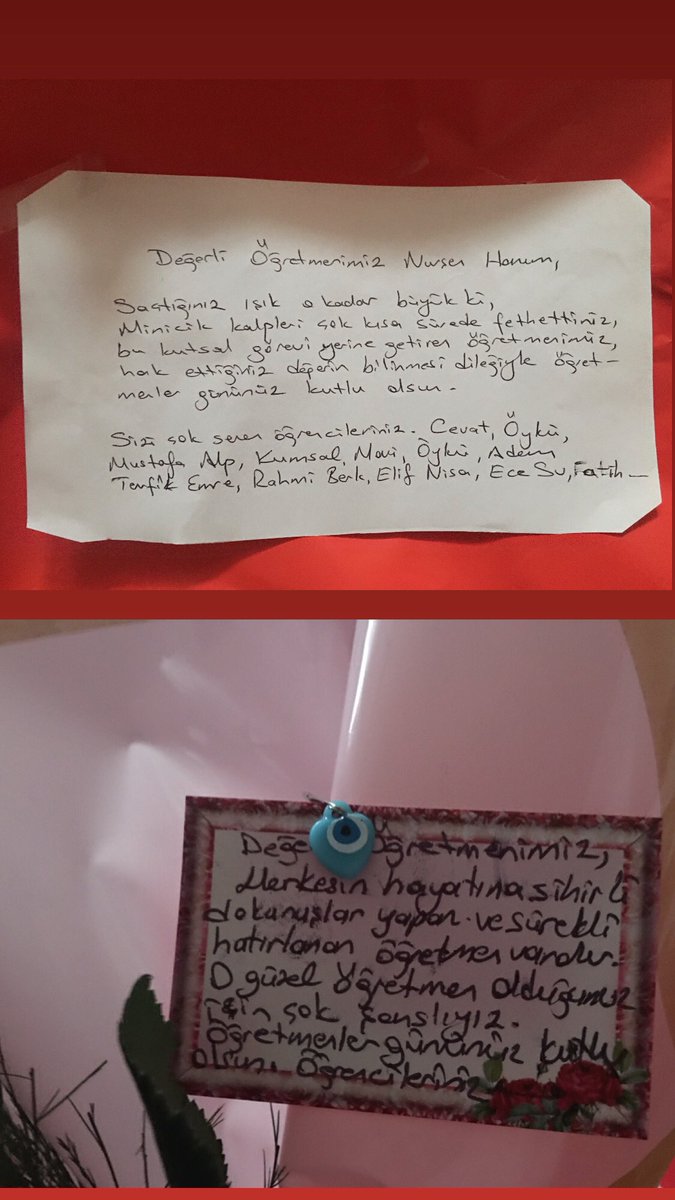 Değerli Öğretmenimiz Nurşen Hanım,
Saçtığınız ışık o kadar büyük ki,
Minicik kalpleri çok kısa sürede fethettiniz,
bu kutsal görevi yerine getiren öğretmenimiz,
hak ettiğiniz değerin bilinmesi dileğiyle öğret-
menler gününüz kutlu olsun.
Sizi çok seven öğrencileriniz. Cevat, Öykü,
Mustafa Alp, Kumsal, Mavi, Öykü, Adem
Tevfik Emre, Rahmi Berk, Elif Nisa, Ece Su, Fatih
Değe Öğretmenimiz,
Herkesin hayatına sihirli
dokunuşlar yapan ve sürekli
hatırlanan öğretmen vardır.
O güzel Öğretmen olduğunuz
için çok şanslıyız.
Öğretmenler gününüz kutlu
olsun. Öğrencileriniz